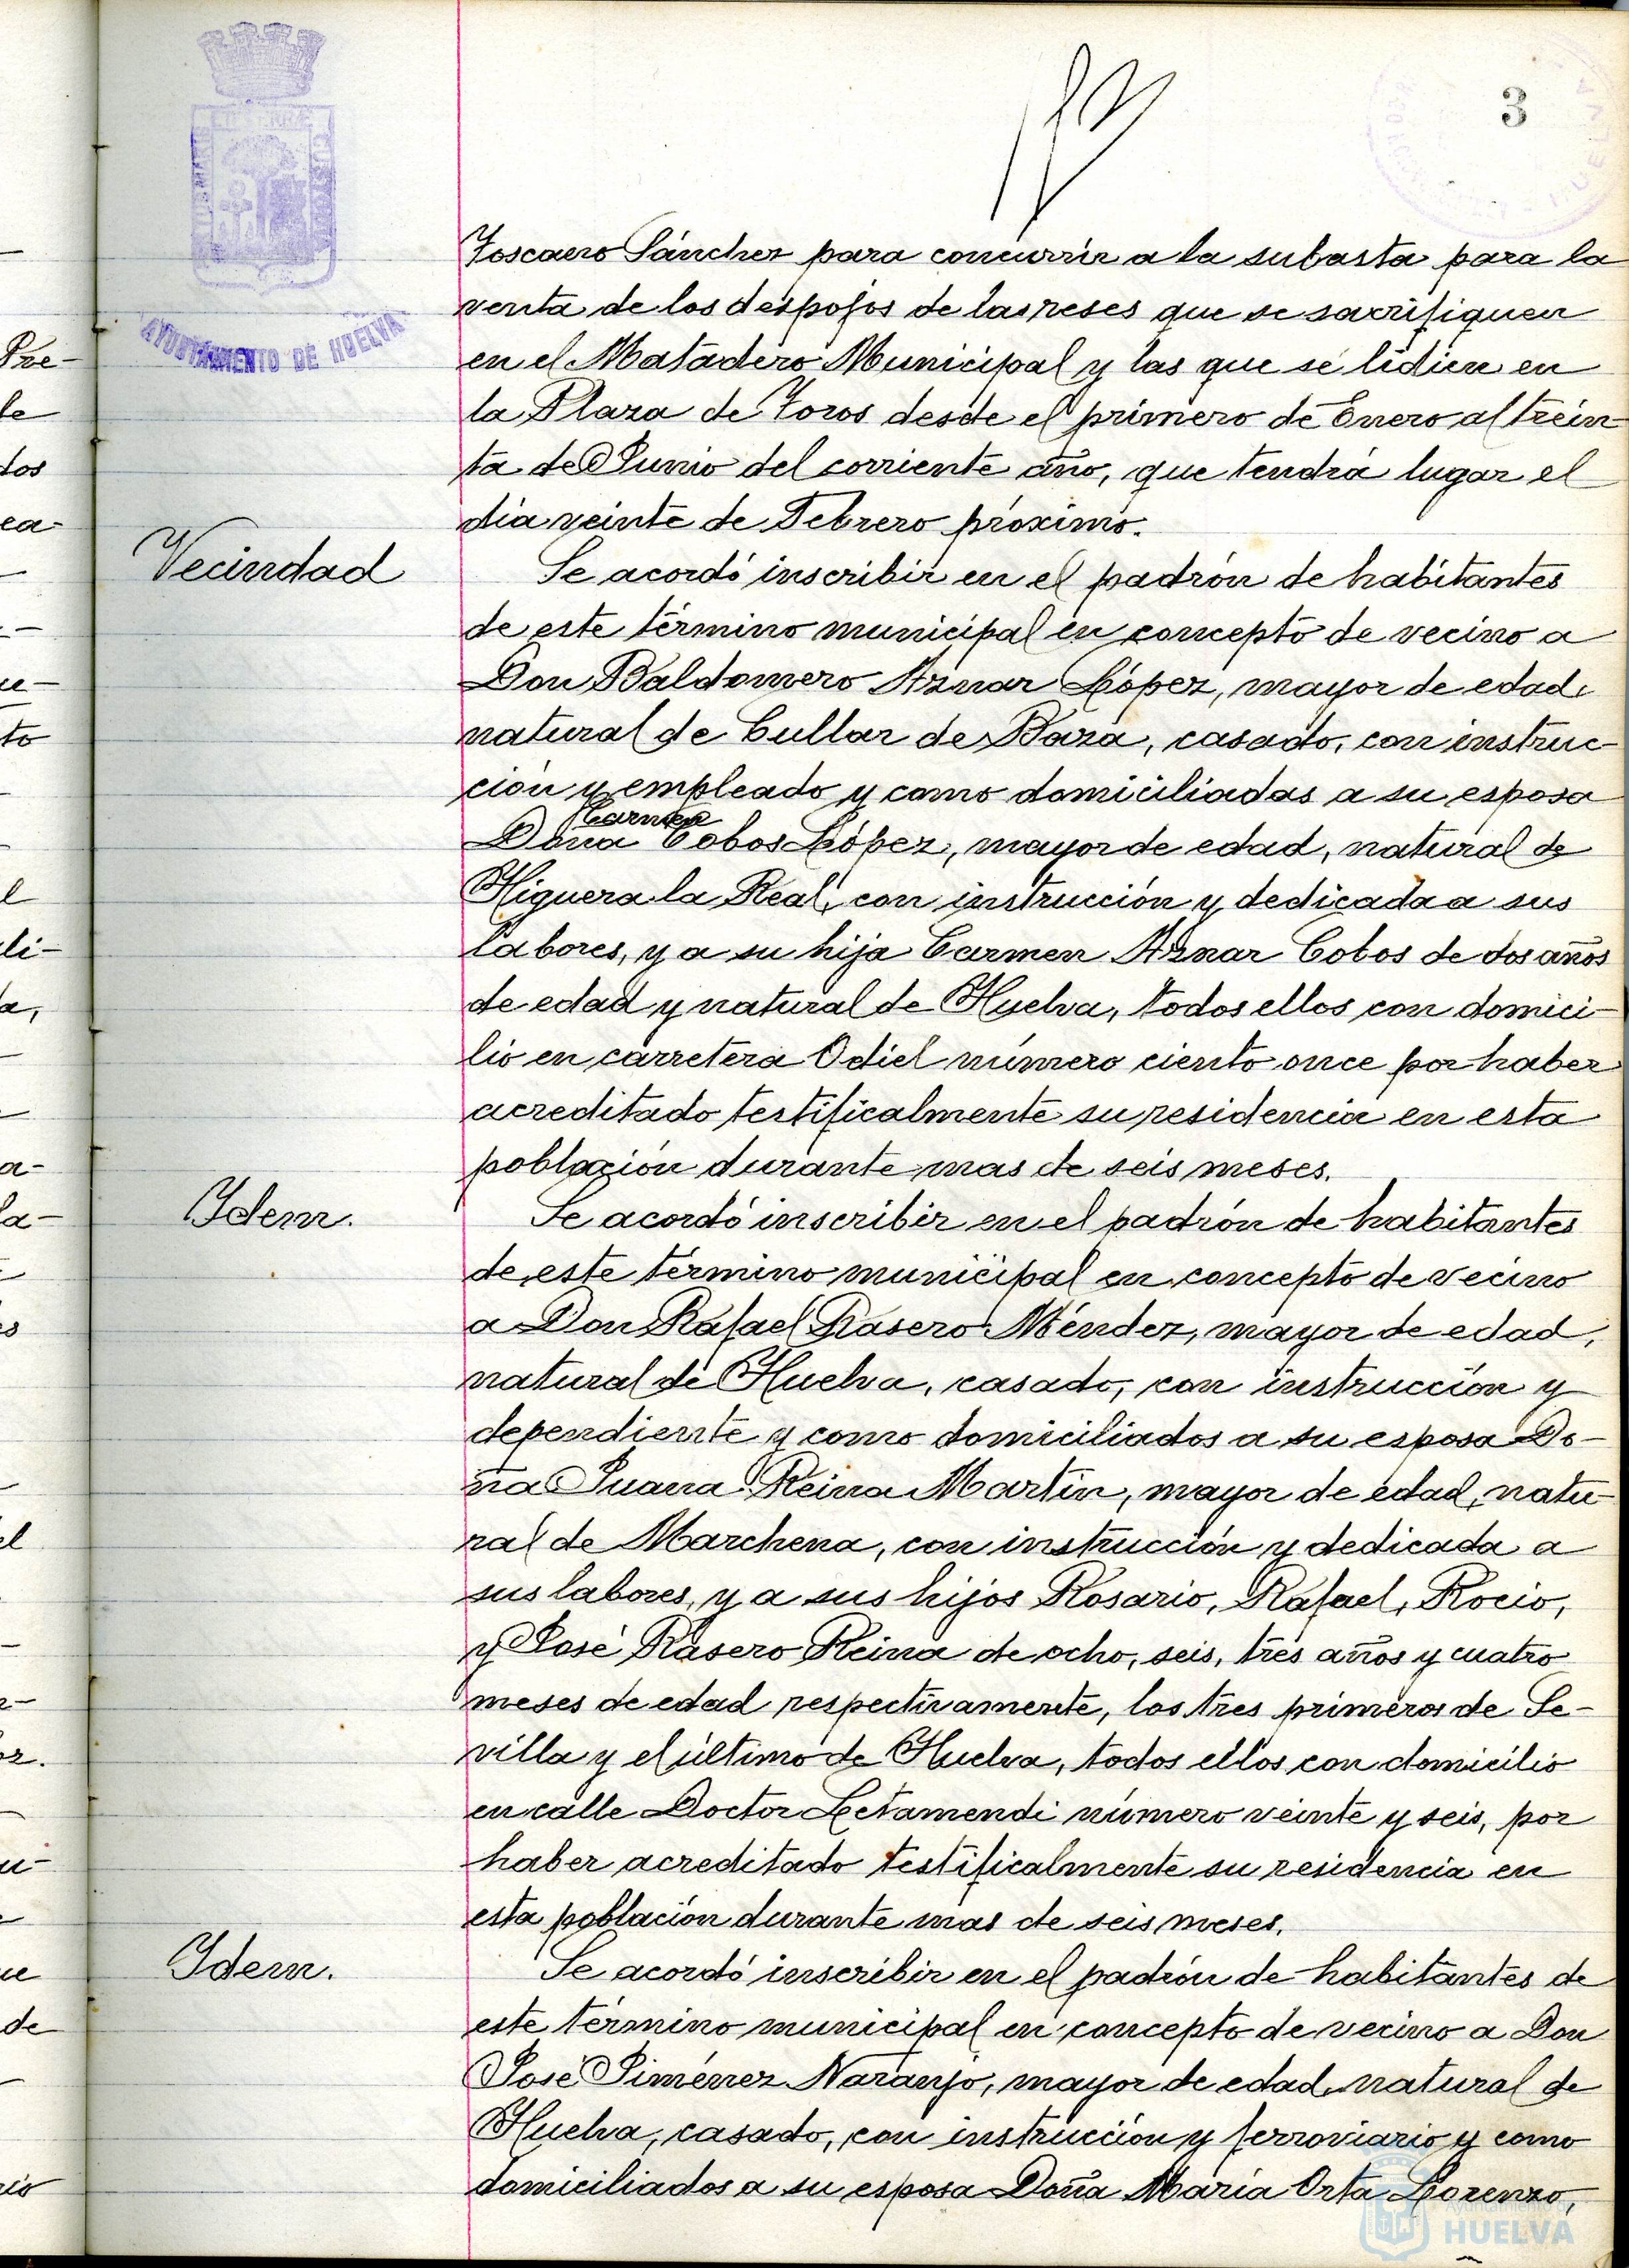 3
AYUNTAMIENTO DE HUELVA
Toscano Sánchez para concurrir a la subasta para la
venta de los despojos de las reses que se sacrifiquen
en el Matadero Municipal y las que se lidien en
la Plaza de Toros desde el primero de Enero al trein-
ta de Junio del corriente año, que tendrá lugar el
dia veinte de Febrero próximo.
Vecindad
Se acordó inscribir en el padrón de habitantes
de este término municipal en concepto de vecino a
Don Baldomero Aznar López, mayor de edad,
natural de Cullar de Baza, casado, con instruc-
ción y empleado y como domiciliadas a su esposa
Carmen
Doña Cobos López, mayor de edad, natural de
Higuera la Real, con instrucción y dedicada a sus
labores, y a su hija Carmen Aznar Cobos de dos años
de edad y natural de Huelva, todos ellos con domici-
lio en carretera Odiel número ciento once por haber
acreditado testificalmente su residencia en esta
población durante mas de seis meses.
Idem.
Se acordó inscribir en el padrón de habitantes
de este término municipal en concepto de vecino
a Don Rafael Rasero Méndez, mayor de edad,
natural de Huelva, casado, con instrucción y
dependiente y como domiciliados a su esposa Do-
ña Juana Reina Martín, mayor de edad, natu-
ral de Marchena, con instrucción y dedicada a
sus labores, y a sus hijos Rosario, Rafael, Rocio,
y José Rasero Reina de ocho, seis, tres años y cuatro
meses de edad respectivamente, los tres primeros de Se-
villa y el último de Huelva, todos ellos con domicilio
en calle Doctor Letamendi número veinte y seis, por
haber acreditado testificalmente su residencia en
esta población durante mas de seis meses.
Idem.
Se acordó inscribir en el padrón de habitantes de
este término municipal en concepto de vecino a Don
José Jiménez Naranjo, mayor de edad, natural de
Huelva, casado, con instrucción y ferroviario y como
domiciliados a su esposa Doña María Orta Lorenzo,
HUELVA